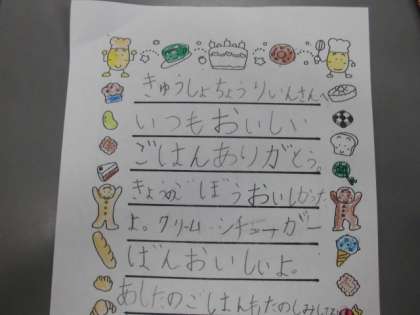 きゅうしょちょうりいんさんへ
いつもおいしい
ごはんありがとう。
きょうのごぼうおいしかった
よ。クリームシチューがー
ばんおいしいよ。
あしたのごはんもたのしみにしてる